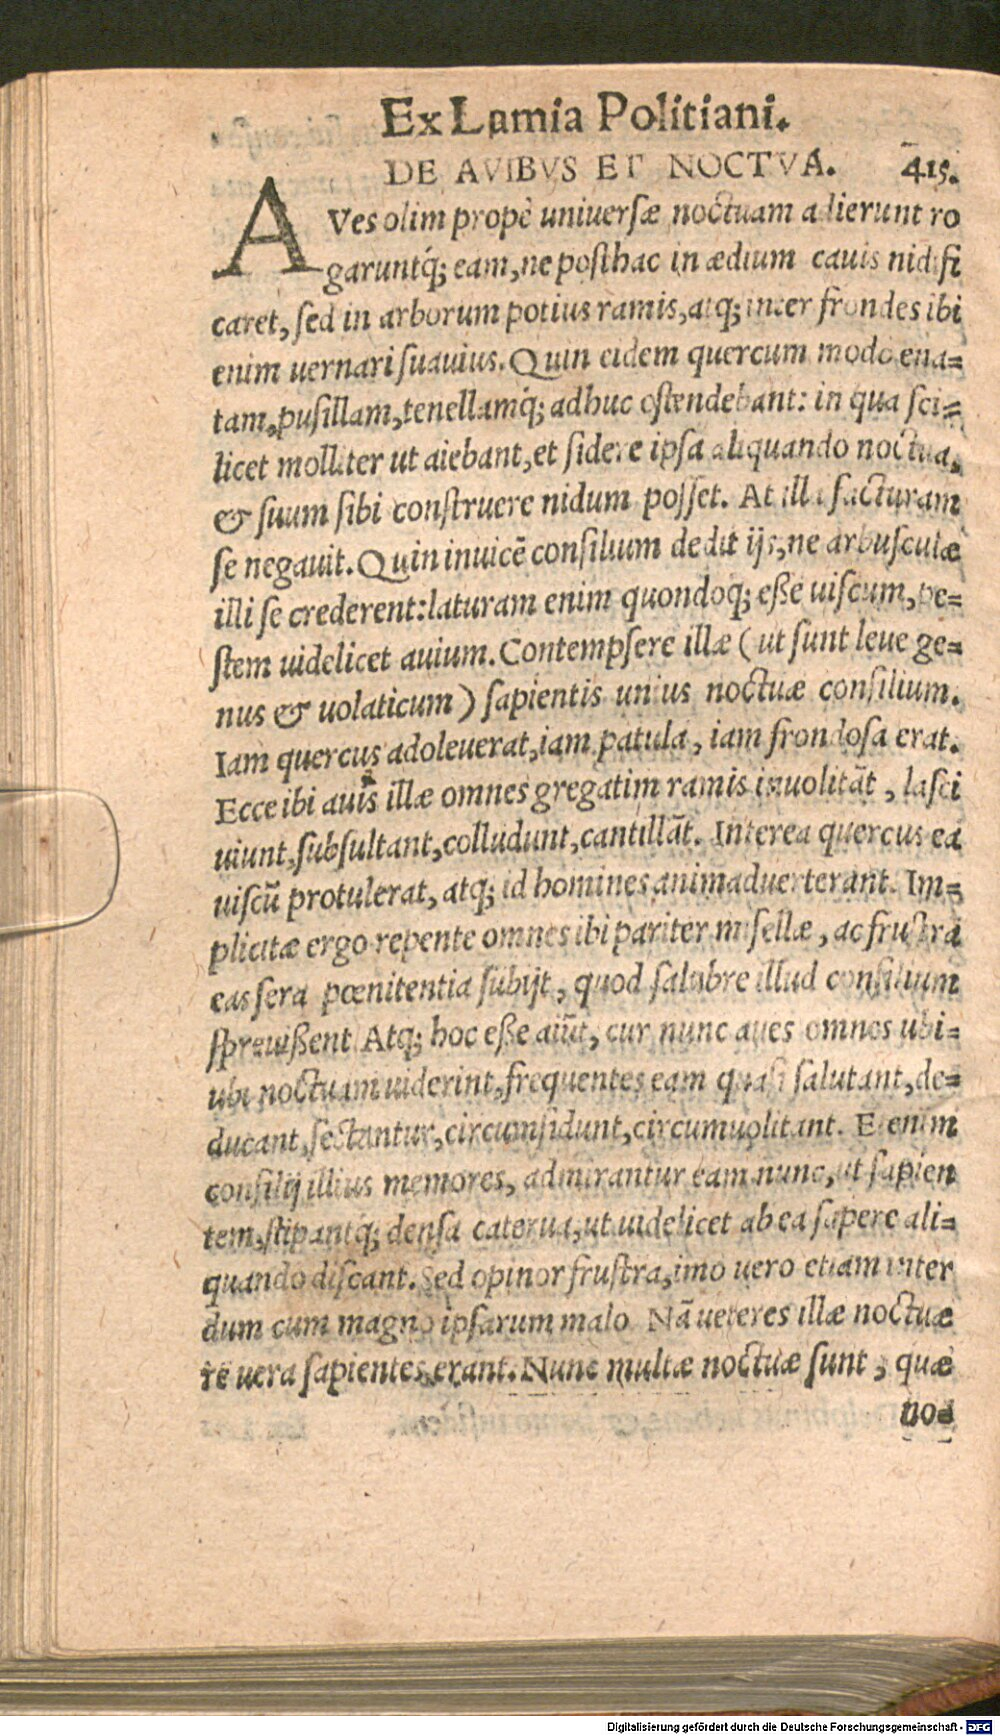 Ex Lamia Politiani.
DE AVIBVS ET NOCTVA. 415.
AVes olim propè uniuersæ noctuam adierunt ro
garuntq́; eam, ne posthac in ædium cauis nidifi
caret, sed in arborum potius ramis, atq; inter frondes ibi
enim uernari suauius. Quin eidem quercum modo ena=
tam, pusillam, tenellamq́; adhuc ostendebant: in qua sci=
licet molliter ut aiebant, et sidere ipsa aliquando noctua,
& suum sibi construere nidum posset. At illa facturam
se negauit. Quin inuicē consilium dedit ijs, ne arbusculæ
illi se crederent: laturam enim quondoq; eße uiscum, pe=
stem uidelicet auium. Contempsere illæ (ut sunt leue ge=
nus & uolaticum) sapientis unius noctuæ consilium.
Iam quercus adoleuerat, iam patula, iam frondosa erat.
Ecce ibi auis illæ omnes gregatim ramis inuolitāt, lasci
uiunt, subsultant, colludunt, cantillāt. Interea quercus ea
uiscū protulerat, atq; id homines animaduerterant. Im=
plicitæ ergo repente omnes ibi pariter misellæ, ac frustra
eas sera pœnitentia subijt, quod salubre illud consilium
spreuißent. Atq; hoc eße aiūt, cur nunc aues omnes ubi=
ubi noctuam uiderint, frequentes eam quasi salutant, de=
ducant, sectantur, circumsidunt, circumuolitant. Etenim
consilij illius memores, admirantur eam nunc, ut sapien
tem, stipantq́; densa caterua, ut uidelicet ab ea sapere ali=
quando discant. Sed opinor frustra, imo uero etiam inter
dum cum magno ipsarum malo. Nā ueteres illæ noctuæ
re uera sapientes erant. Nunc multæ noctuæ sunt, quæ
no=
Digitalisierung gefördert durch die Deutsche Forschungsgemeinschaft - DFG